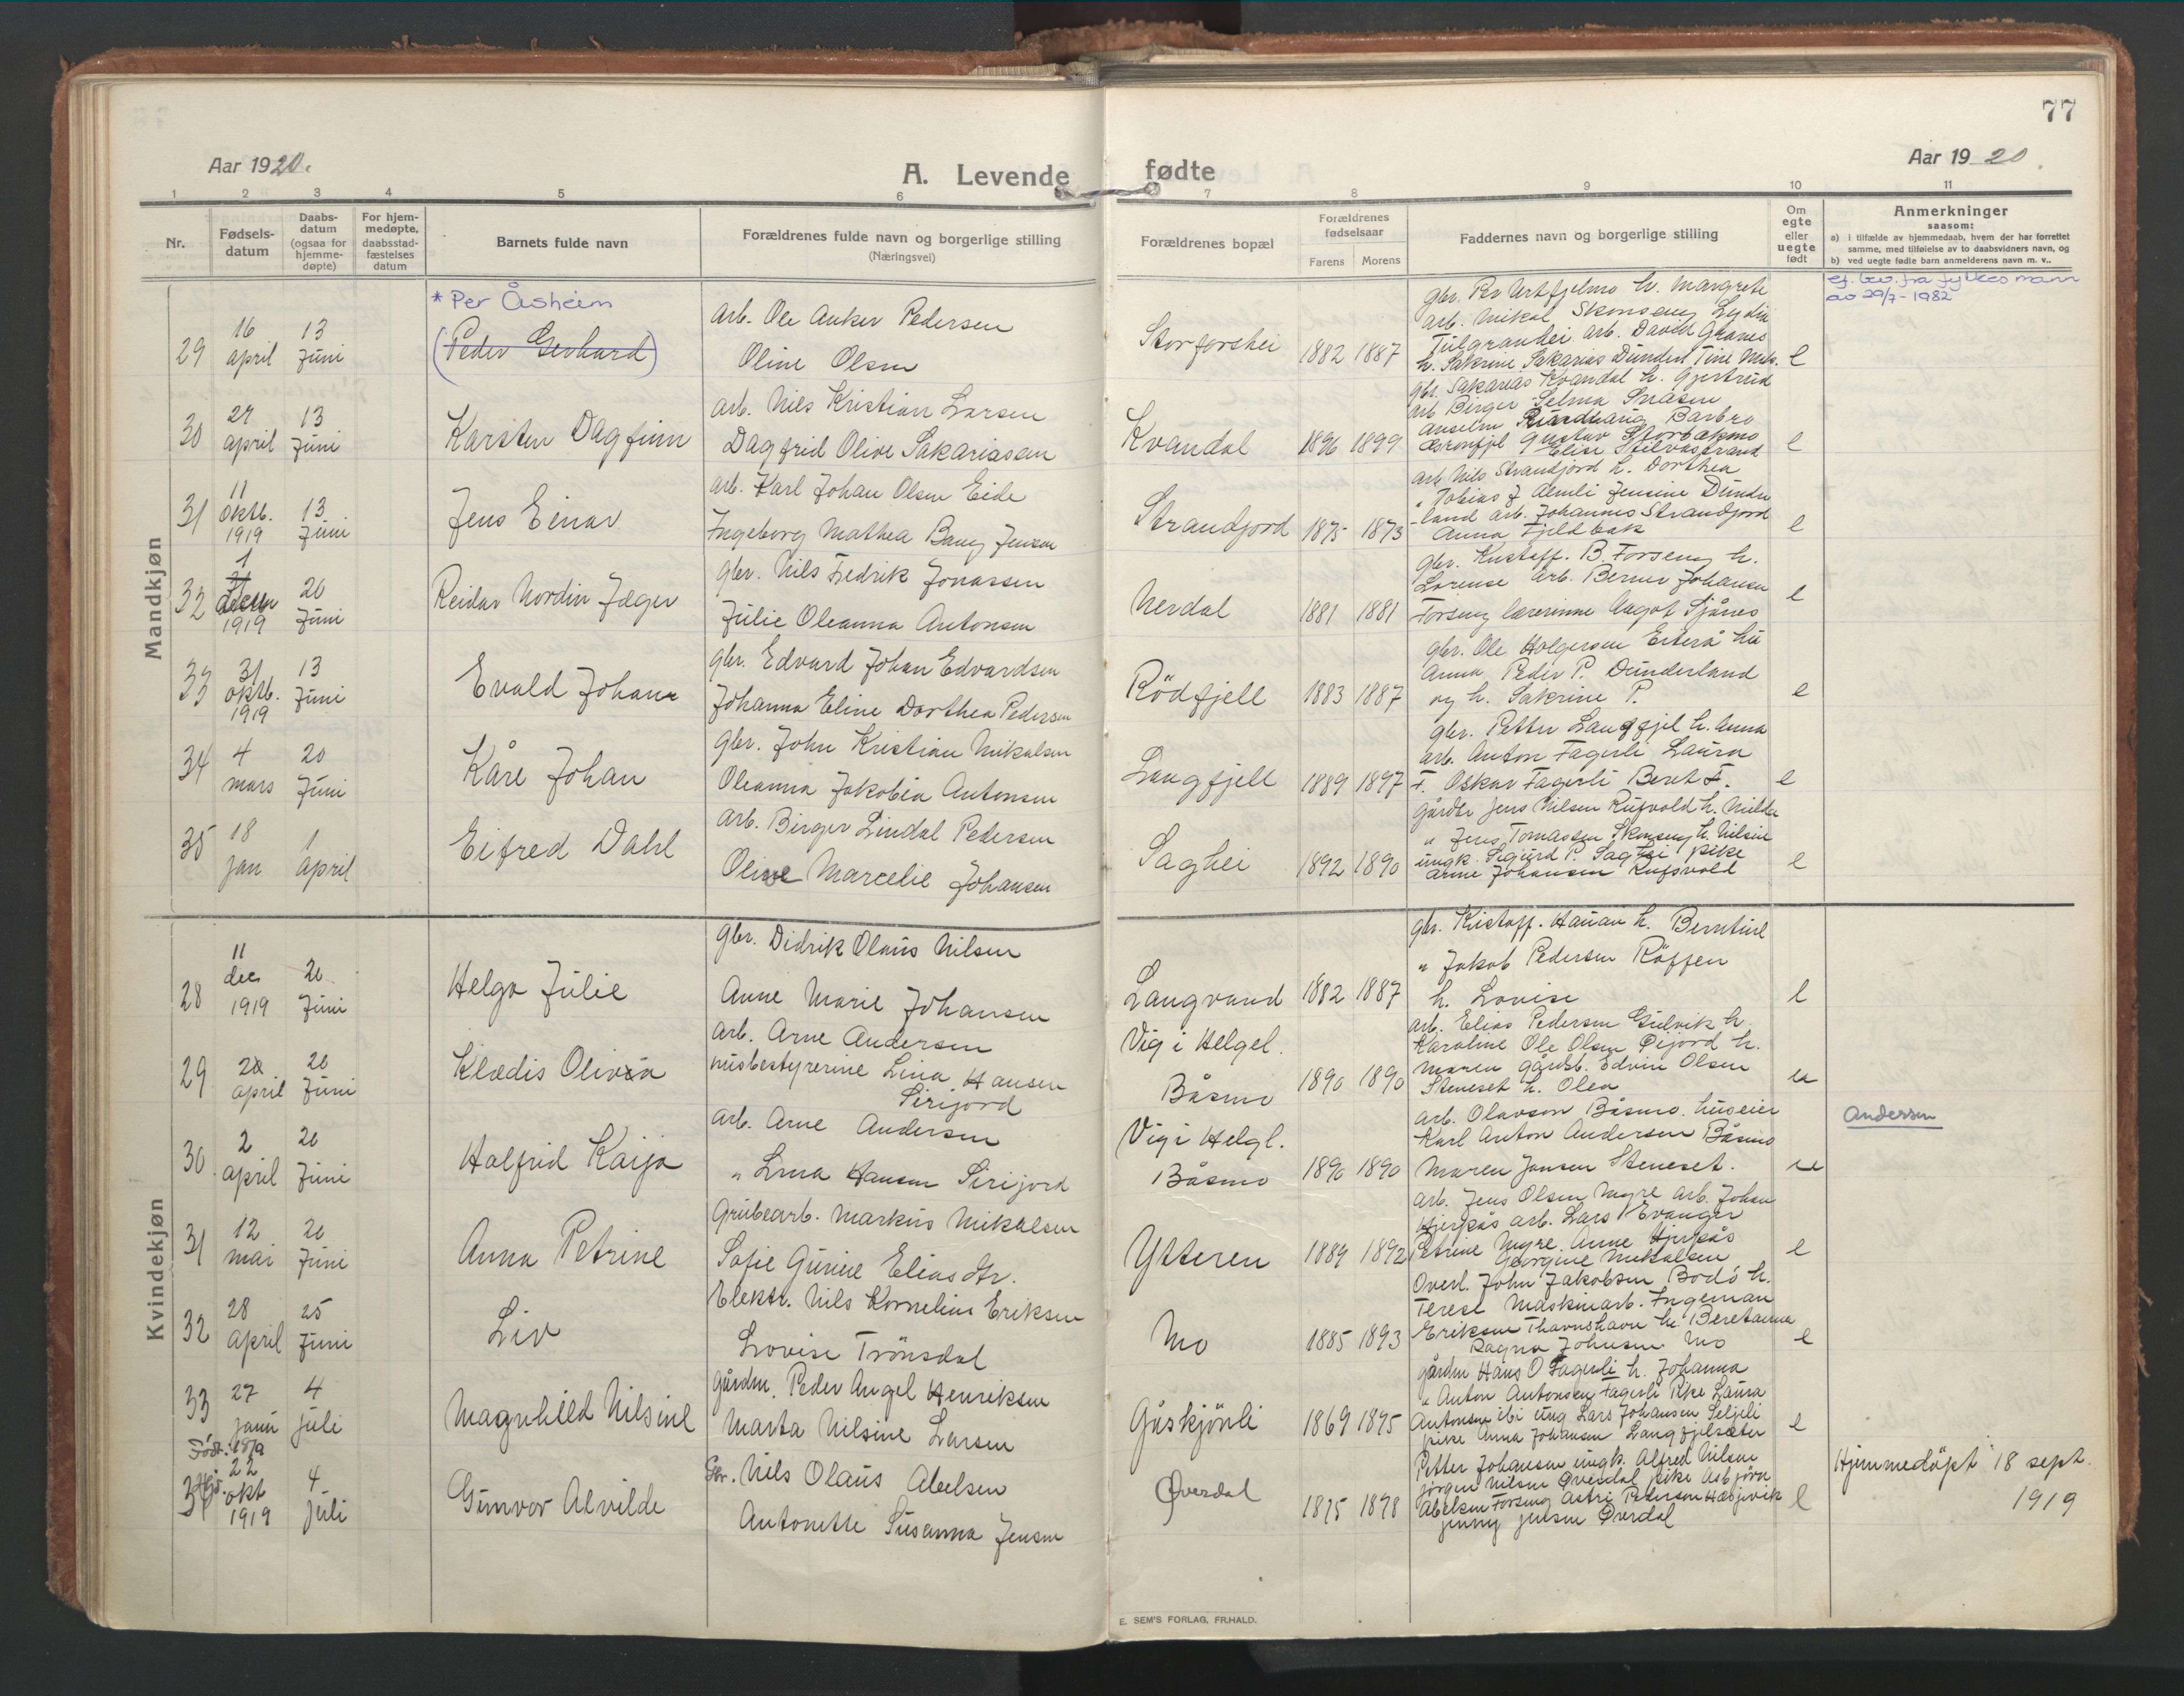 77
Aar 1920.
A. Levende fødte
Aar 1920.
1 2 3 4 5 6 7 8 9 10 11
Nr.
Fødsels-datum
Daabs-datum (ogsaa for hjemme-døpte)
For hjem-medøpte, daabsstad-fæstelses datum
Barnets fulde navn
Forældrenes fulde navn og borgerlige stilling
(Næringsvei)
Forældrenes bopæl
Forældrenes fødselsaar
Farens Morens
Faddernes navn og borgerlige stilling
Om egte eller uegte født
Anmerkninger
saasom:
a) i tilfælde av hjemmedaab, hvem der har forrettet
samme, med tilføielse av to daabsvidners navn, og
b) ved uegte fødte barn anmelderens navn m. v..
Mandkjøn
29
16 april
13 Juni
* Per Åsheim
(Peder Gerhard)
arb. Ole Anker Pedersen
Oline Olsen
Storforshei
1882 1887
gbr. Per Urtfjelmo h. Margrete
arb. Mikal Skonseng Lydia
arb. David Granes
h. Sakrine Sakarias Dunderl Tine Mils.
e
ef. bev. fra fylkesmann
av 29/7-1982
30
27 april
13 Juni
Karsten Dagfinn
arb. Nils Kristian Larsen
Dagfrid Olive Sakariasen
Kvandal
1896 1899
gbr. Sakarias Kvandal h. Gjertrud
arb Birger Selma Snasen
Anselm Barbro
Gustav Storbækmo
Elise Stilvasstrand
e
31
11 oktb. 1919
13 Juni
Jens Einar
arb. Karl Johan Olsen Eide
Ingeborg Mathea Bang Jensen
Strandjord
1875 1873
arb Nils Strandjord h. Dorthea
" Tobias J Almli Jensine Dunder
-land arb. Johannes Strandjord
Anna Fjeldbak
e
32
1 decbr 1919
20 Juni
Reidar Nordin Jæger
gbr. Nils Fredrik Jonassen
Julie Oleanna Antonsen
Nerdal
1881 1881
gbr. Kristoff. B. Forseng h.
Lorense arb. Berner Johansen
Forseng lærerinne Aagot Sjånes
e
33
31 oktb. 1919
13 Juni
Evald Johan
gbr. Edvard Johan Edvardsen
Johanna Eline Dorthea Pedersen
Rödfjell
1883 1887
gbr. Ole Holgersen Erterå hu
Anna Peder P. Dunderland
og h. Sakrine P.
e
34
4 mars
20 Juni
Kåre Johan
gbr. John Kristian Mikalsen
Oleanna Jakobia Antonsen
Langfjell
1889 1897
gbr. Petter Langfjel h. Anna
arb. Anton Fagerli Laura
F. Oskar Fagerli Beret F.
e
35
18 jan
1 april
Eifred Dahl
arb. Birger Lindal Pedersen
Oline Marcelie Johansen
Saghei
1892 1890
gårdbr Jens Nilsen Rufsvold h. Milda
" Jens Tomassen Skonseng h. Nilsine
ungk. Sigurd P. Saghei pike
Arne Johansen Rufsvold
e
Kvindekjøn
28
11 dec 1919
20 Juni
Helga Julie
gbr. Didrik Olaus Nilsen
Anne Marie Johansen
Langvand
1882 1887
gbr. Kistoff. Hauan h. Berntine
" Jakob Pedersen Röffen
h. Lovise
e
29
april
20 Juni
Klædis Olivia
arb. Arne Andersen
Lina Hansen
Sirijord
Vig i Helgel.
Båsmo
1890 1890
arb. Elias Pedersen Gulvik h.
Karoline Ole Olsen h.
Maren gårdb. Edvin Olsen
Steneset h. Olea
ue
30
2 april
20 Juni
Halfrid Kaija
arb. Arne Andersen
" Lina Hansen Sirijord
Vig i Helgl.
Båsmo
1890 1890
arb. Olavson Båsmo. huseier
Karl Anton Andersen Båsmo
Maren Jonsen Steneset.
ue
Andersen
31
12 mai
20 Juni
Anna Petrine
Grubearb. Markus Mikalsen
Sofie Gurine Eliasdtr.
Ytteren
1889 1892
arb. Jens Olsen Myre arb. Johan
Hjerpås arb. Lars Evanger
Petrine Myre Anne Hjerpås
Georgine Mikalsen
e
32
28 april
25 Juni
Liv
Elektr. Nils Kornelius Eriksen
Lovise Trönsdal
Mo
1885 1893
Overl. John Jakobsen Bodö h.
Terese Maskinarb. Ingeman
Eriksen Thavnshavn h. Beretanna
Ragna Johnsen Mo
e
33
27 janu
4 juli
Magnhild Nilsine
gårdm. Peder Angel Henriksen
Marta Nilsine Larsen
Guskjönli
1869 1895
gårdm Hans O Fagerli h. Johanna
" Anton Antonsen Fagerli Pike Laura
Antonsen ibi ung Lars Johansen Seljeli
pike Anna Johansen Langfjelsæter
e
34
Födt: 18/9
22 okt 1919
4 juli
Gunvor Alvilde
Gbr. Nils Olaus Abelsen
Antonette Susanna Jensen
Øverdal
1875 1878
Petter Johansen ungk. Alfred Nilsen
Jörgen Nilsen Øverdal pike Asbjörn
Abelsen Forseng Astri Pedersen Hæsjevik
Jenny Jensen Øverdal
e
Hjemmedöpt 18 sept.
1919
E. SEM'S FORLAG, FR.HALD.